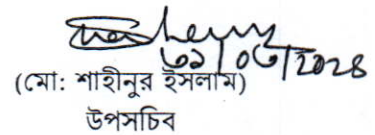 ৩১/০৩/২০২৪
(মো: শাহীনুর ইসলাম)
উপসচিব